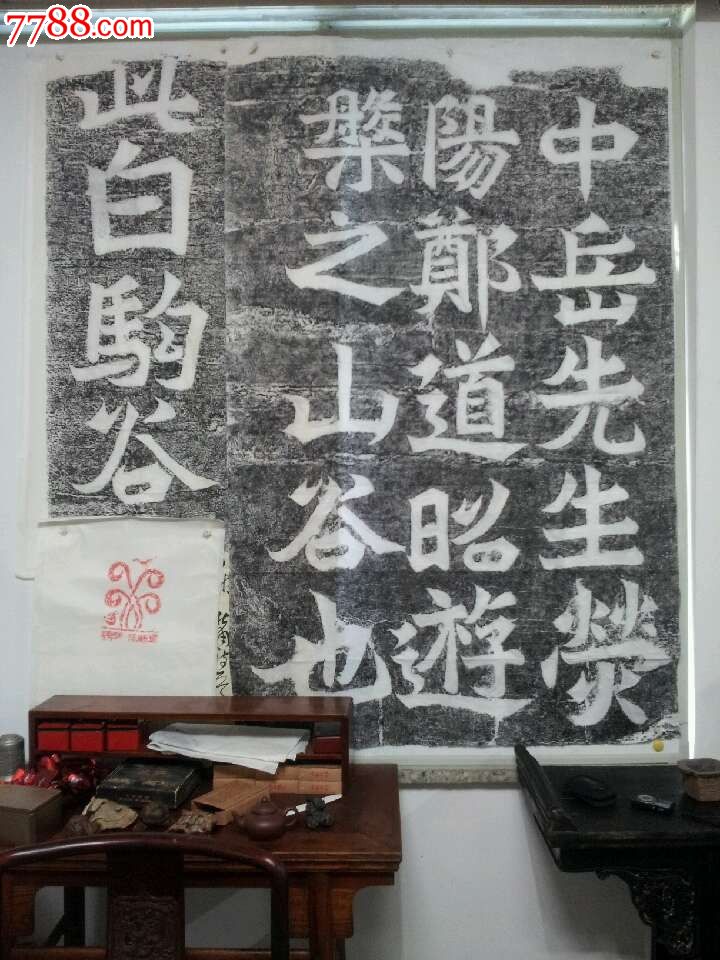 7788.com
中岳先生熒
陽鄭道昭遊
槃之山谷也
此白駒谷